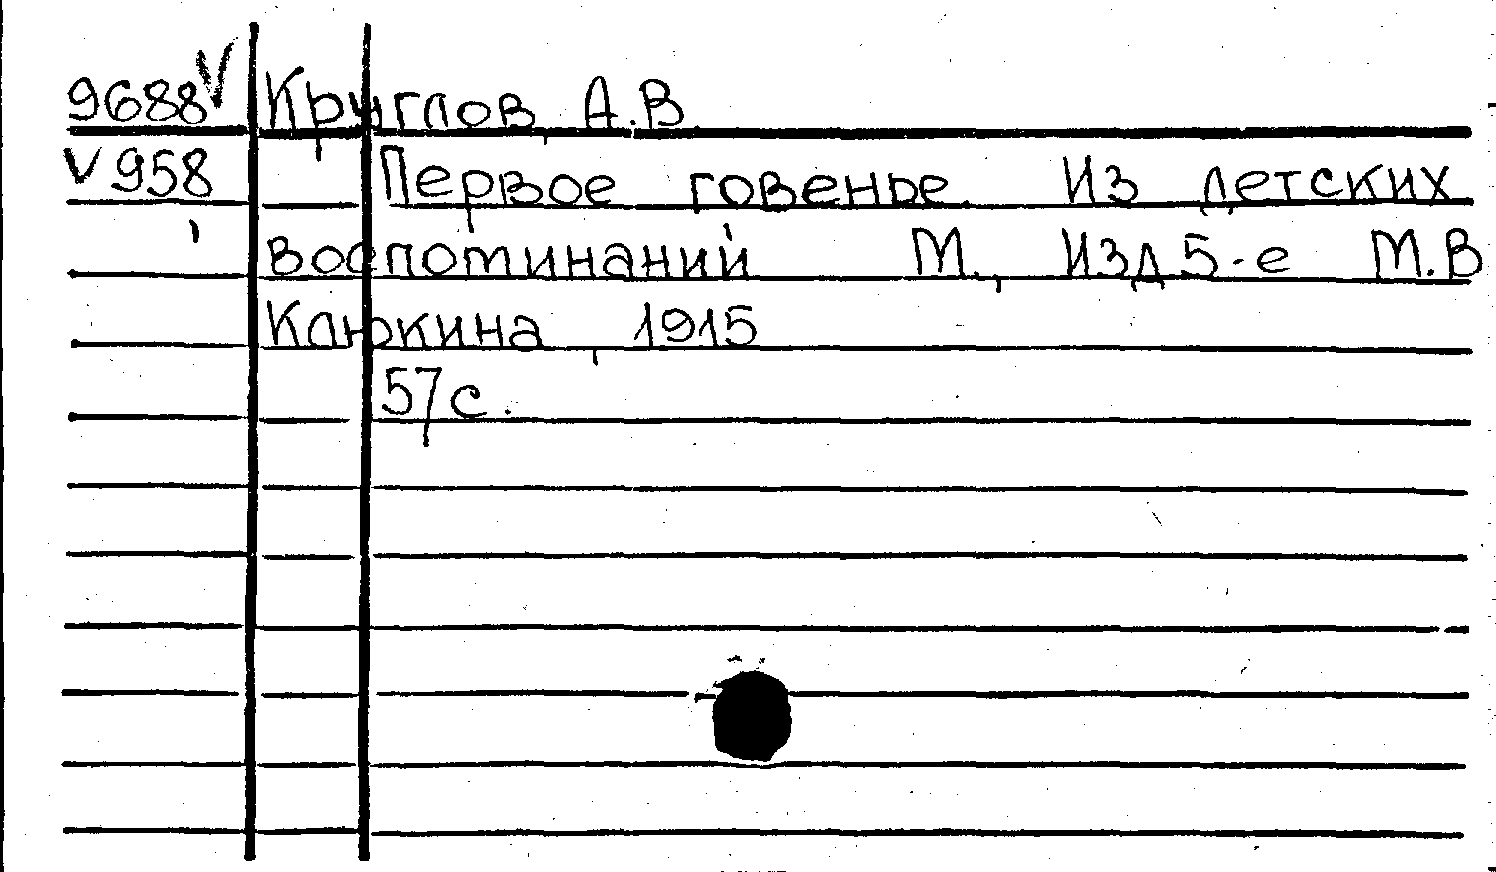 9688 V Круглов, А.В.
V 958 Первое говенье. Из детских
воспоминаний М., Изд 5-е М.В
Клюкина, 1915
57 с.